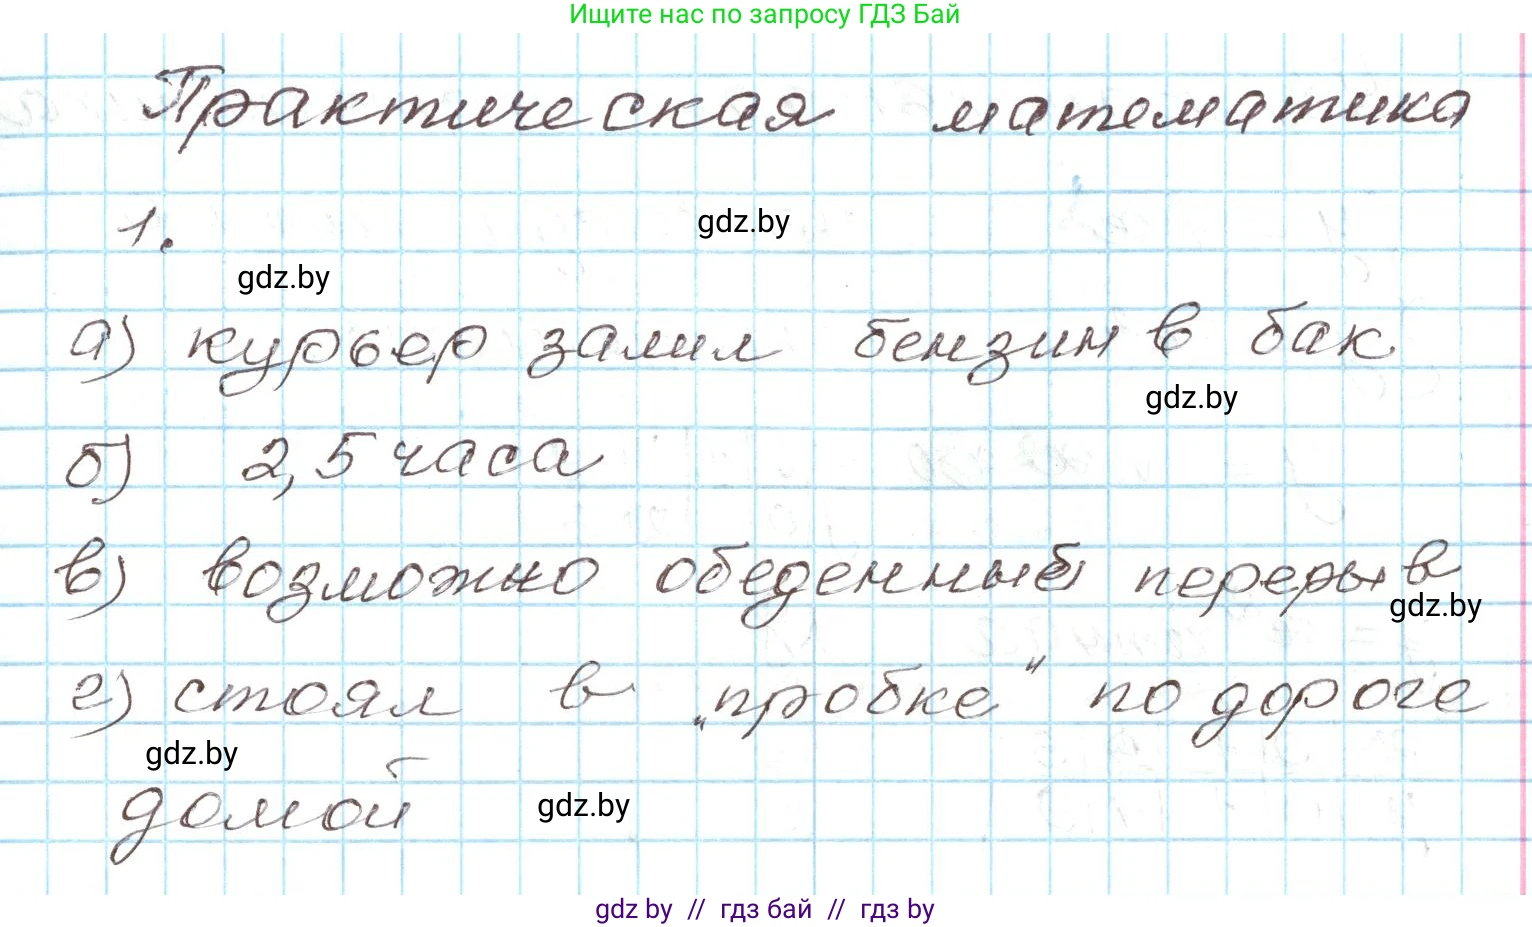 Ищите нас по запросу ГДЗ Бай
Практическая математика
1.
gdz.by
gdz.by
а) курьер залил бензин в бак
gdz.by
б) 2,5 часа
в) возможно обеденный перерыв
gdz.by
г) стоял в „пробке" по дороге
gdz.by
домой
gdz.by
gdz by // гдз бай // гдз by